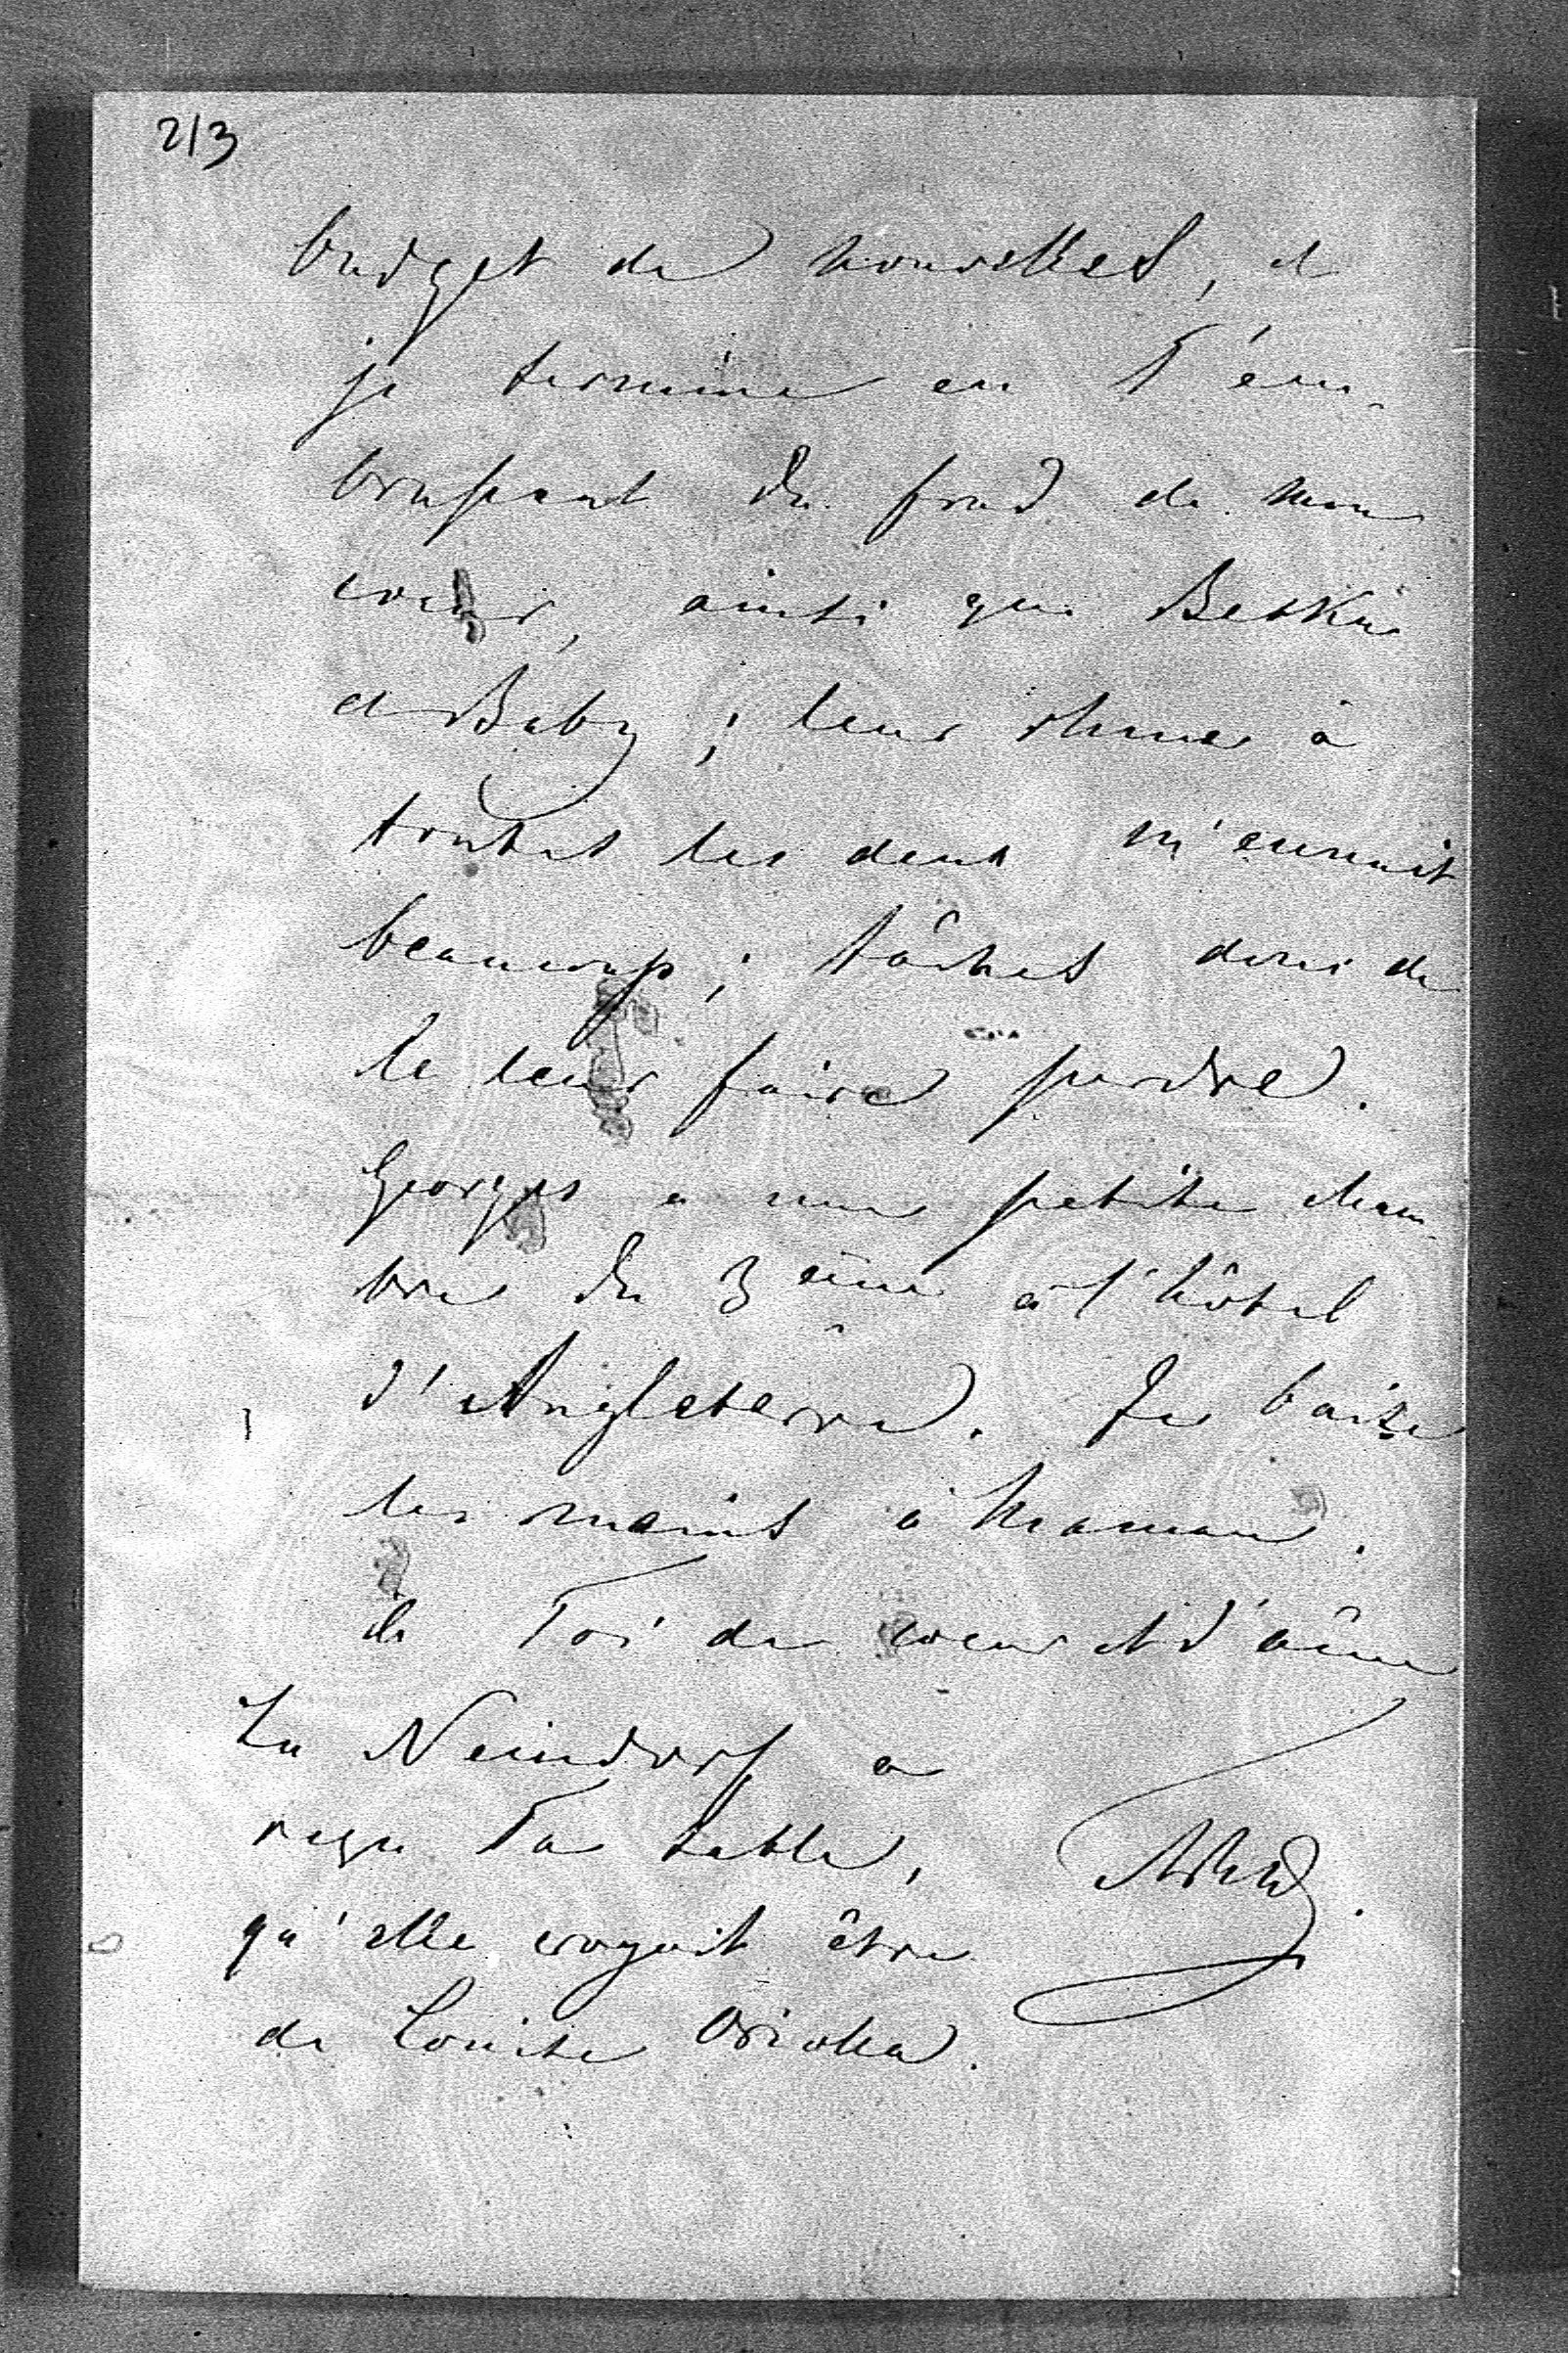 213
budget de nouvelles, et
je termine en T'em-
brassant du fond de mon
coeur, ainsi que
et Baby ; leur rhume à
toutes les deux m'ennuit
beaucoup ; tâches donc de
le leur faire perdre.
Georges a une petite cham-
bre du 3ème à l'hôtel
d'Angleterre. Je baise
les mains à Maman.
à Toi de coeur et d'âme
La Neindorf a
reçu Ta table,
qu'elle croyait être
de Louise Oriolla.